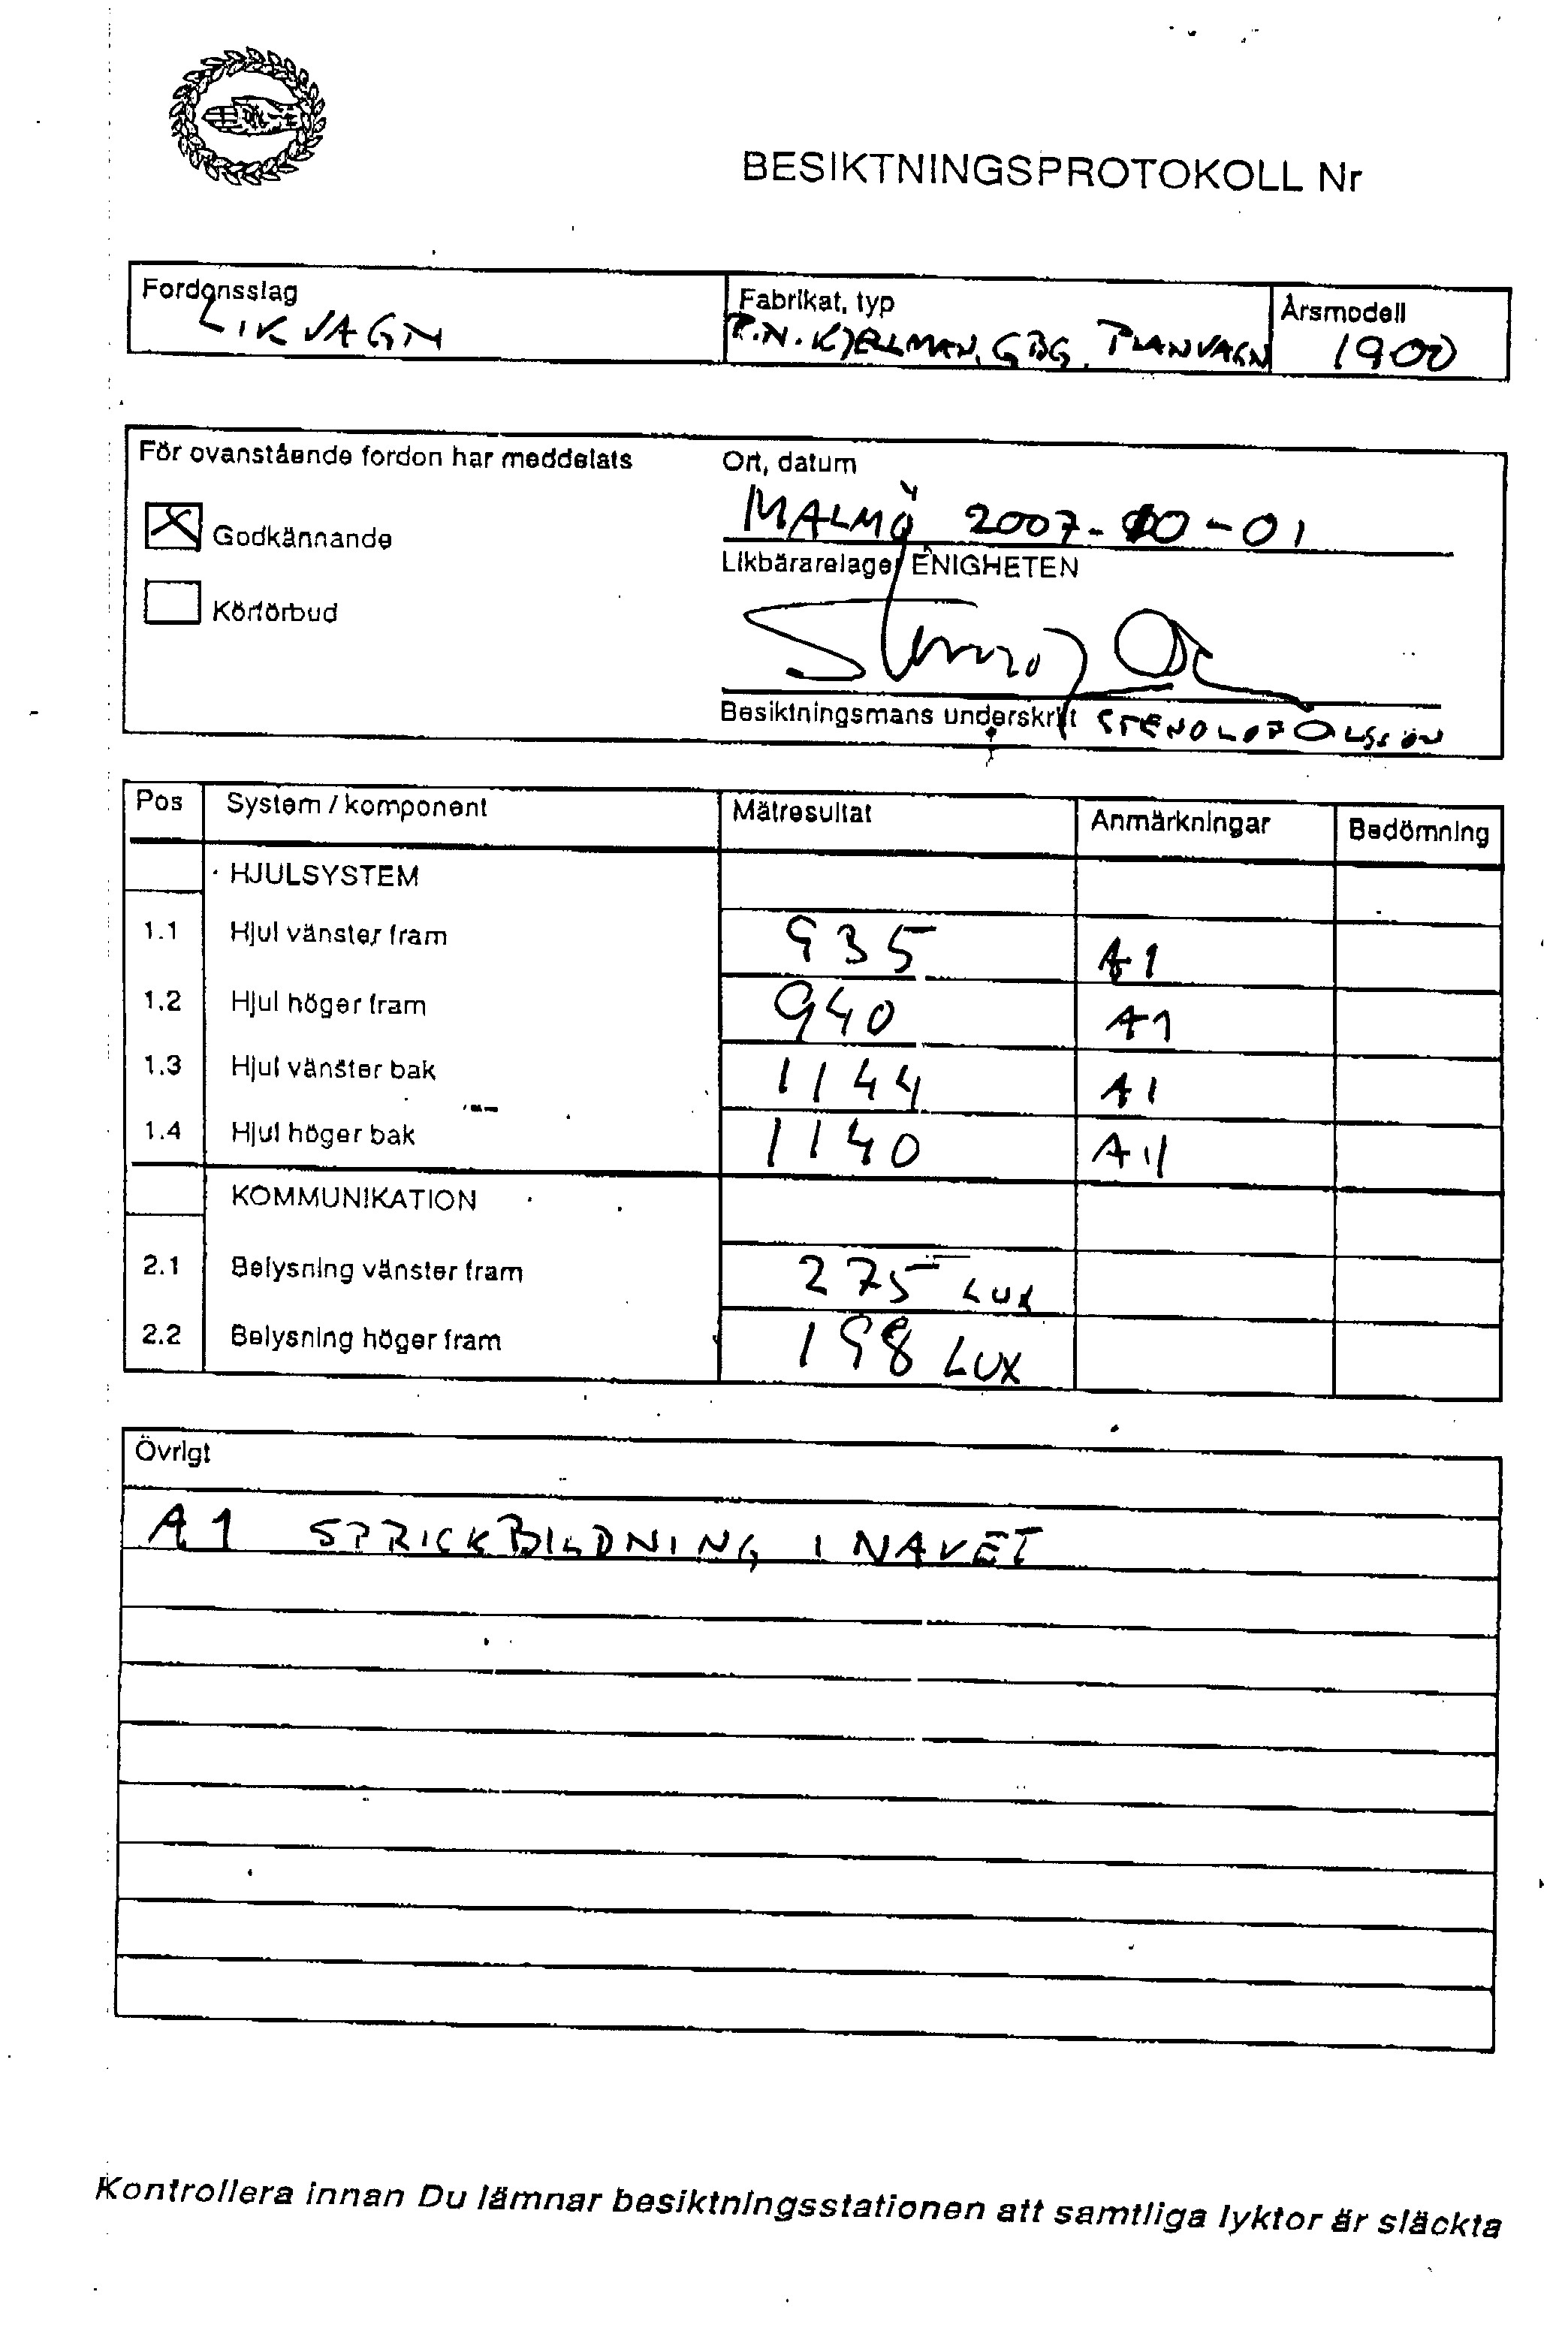 BESIKTNINGSPROTOKOLL Nr
Fordonsslag
LIKVAGN
Fabrikat, typ
P.N. KJELLMAN, GBG, PLANVAGN
Årsmodell
1900
För ovanstående fordon har meddelats
Godkännande
Körförbud
Ort, datum
MALMÖ 2007-10-01
Likbärarelaget ENIGHETEN
Besiktningsmans underskrift STENOLOF OLSSON
Pos System / komponent Mätresultat Anmärkningar Bedömning
HJULSYSTEM
1.1 Hjul vänster fram 935 A1
1.2 Hjul höger fram 940 A1
1.3 Hjul vänster bak 1144 A1
1.4 Hjul höger bak 1140 A1
KOMMUNIKATION
2.1 Belysning vänster fram 275 LUX
2.2 Belysning höger fram 198 LUX
Övrigt
A1 SPRICKBILDNING I NAVET
Kontrollera innan Du lämnar besiktningsstationen att samtliga lyktor är släckta